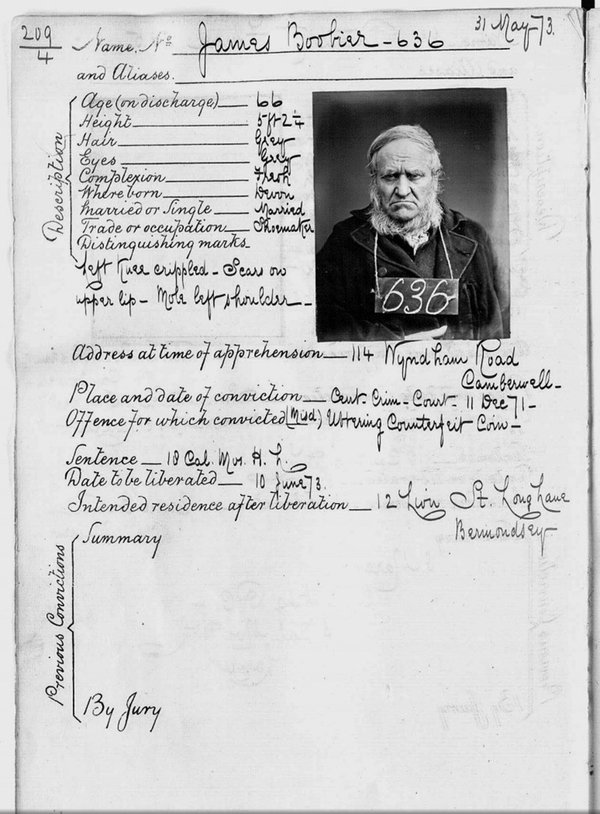 209
4
31 May 73.
Name, No James Boobier - 636
and Aliases.
Description
Age (on discharge) 66
Height 5 ft 2 1/4
Hair Grey
Eyes Grey
Complexion Fresh
Where born Devon
Married or Single Married
Trade or occupation Shoemaker
Distinguishing marks
Left Knee crippled - Scars on
upper lip - Mole left shoulder -
636
Address at time of apprehension 114 Wyndham Road
Camberwell -
Place and date of conviction Cent. Crim - Court - 11 Dec 71 -
Offence for which convicted (Misd) Uttering Counterfeit Coin -
Sentence 18 Cal. Mos. H. L.
Date to be liberated 10 June 73.
Intended residence after liberation 12 St. Long Lane
Bermondsey
Previous Convictions
Summary
By Jury